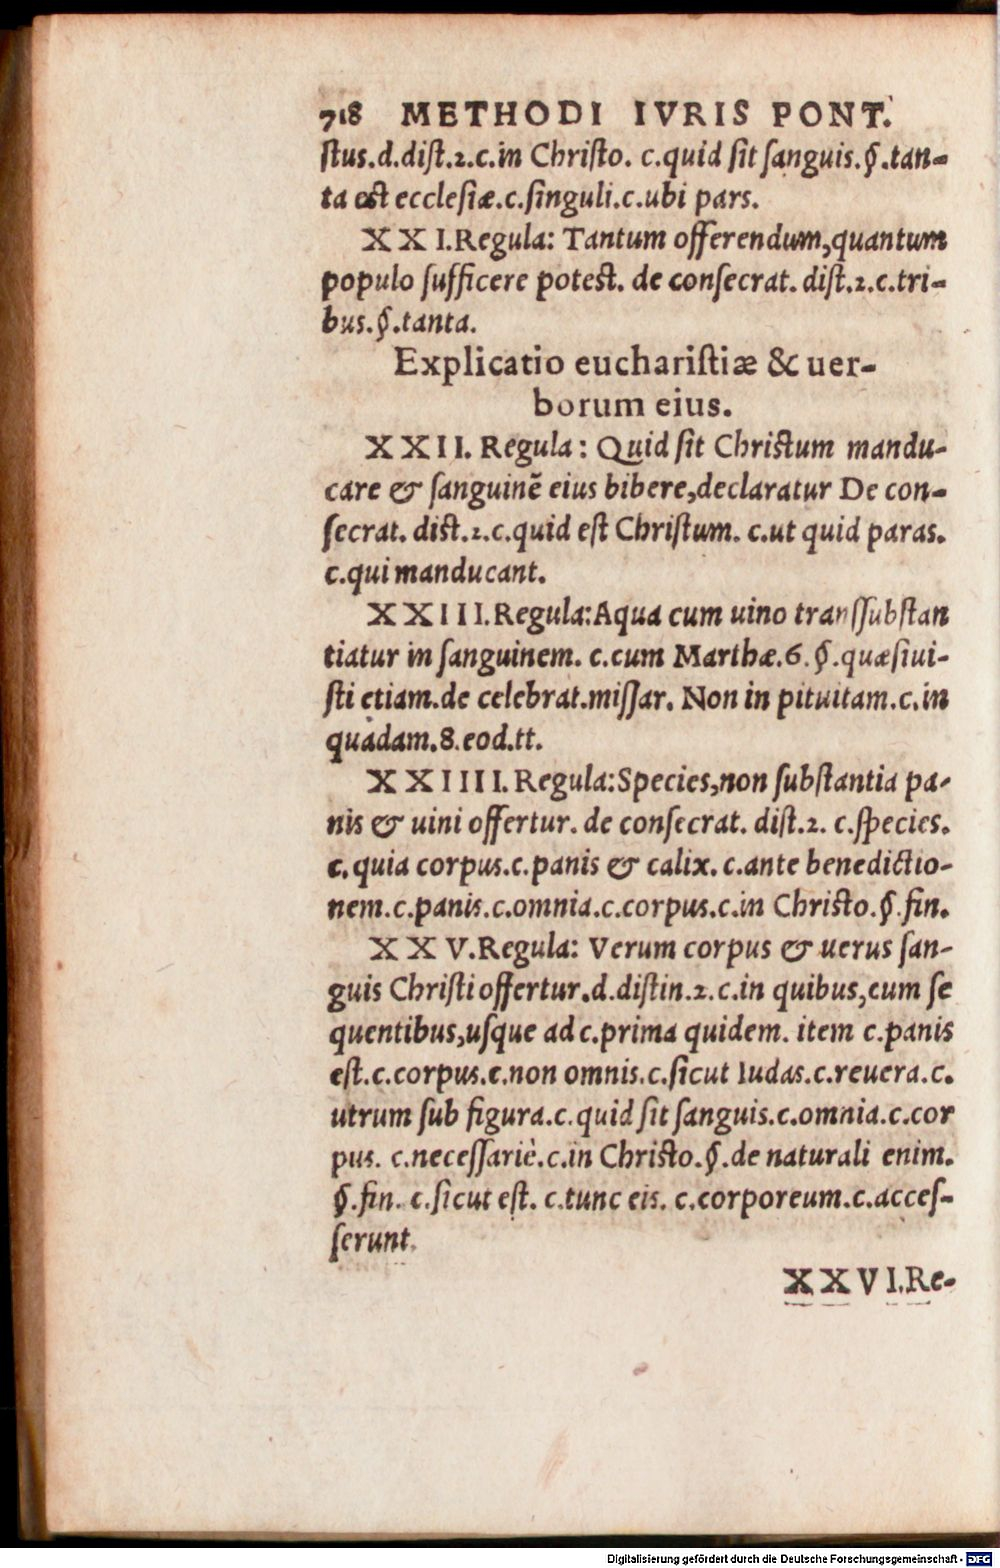 718 METHODI IVRIS PONT.
ſtus.d.diſt.2.c.in Chriſto. c.quid ſit ſanguis.§.tan-
ta est eccleſiæ.c.ſinguli.c.ubi pars.
XXI.Regula: Tantum offerendum,quantum
populo ſufficere potest. de conſecrat. diſt.2.c.tri-
bus.§.tanta.
Explicatio euchariſtiæ & uer-
borum eius.
XXII. Regula: Quid ſit Christum mandu-
care & ſanguinē eius bibere,declaratur De con-
ſecrat. dist.2.c.quid eſt Chriſtum. c.ut quid paras.
c.qui manducant.
XXIII.Regula:Aqua cum uino tranſſubſtan
tiatur in ſanguinem. c.cum Marthæ.6.§.quæſiui-
ſti etiam.de celebrat.miſſar. Non in pituitam.c.in
quadam.8.eod.tt.
XXIIII. Regula:Species,non ſubſtantia pa-
nis & uini offertur. de conſecrat. diſt.2. c.ſpecies.
c.quia corpus.c.panis & calix. c.ante benedictio-
nem.c.panis.c.omnia.c.corpus.c.in Christo.§.fin.
XXV.Regula: Verum corpus & uerus ſan-
guis Chriſti offertur.d.diſtin.2.c.in quibus,cum ſe
quentibus,uſque ad c.prima quidem. item c.panis
eſt.c.corpus.c.non omnis.c.ſicut Iudas.c.reuera.c.
utrum ſub figura.c.quid ſit ſanguis.c.omnia.c.cor
pus. c.neceſſariè.c.in Christo.§.de naturali enim.
§.fin. c.ſicut eſt. c.tunc eis. c.corporeum.c.acceſ-
ſerunt.
XXVI.Re-
Digitalisierung gefördert durch die Deutsche Forschungsgemeinschaft - DFG